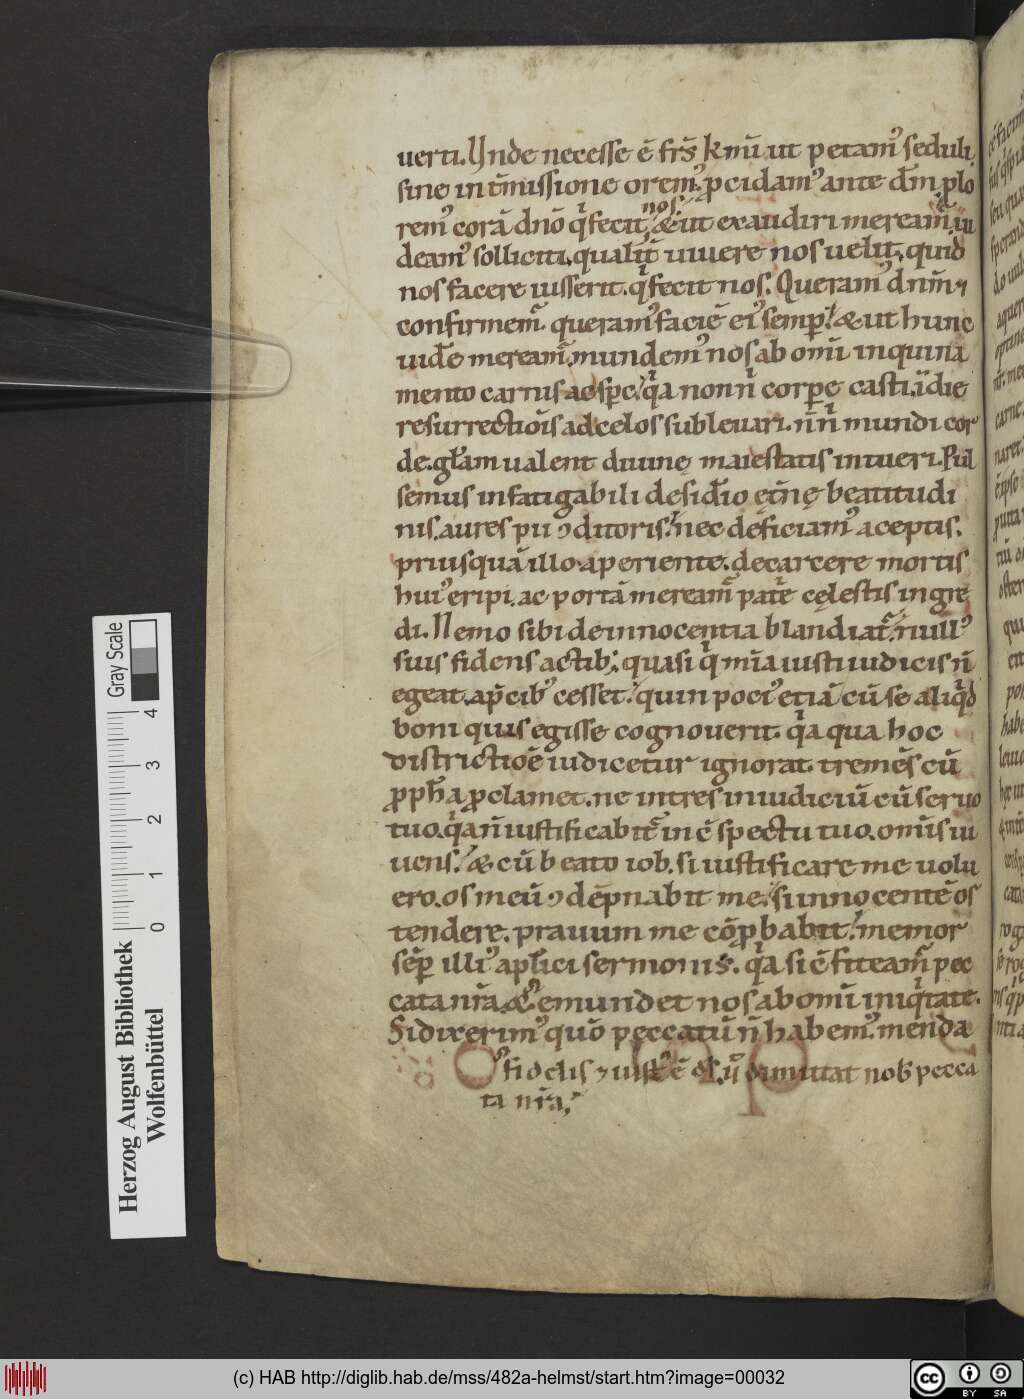 uerti. Vnde necesse ē frs̄ kmī ut petam᷒ seduli,
sine int̄missione orem᷒. ꝓcidam᷒ ante dm̄. plo
rem᷒ corā dnō qͥ fecit nos. & ut exaudiri meream̄. ui
deam᷒ solliciti, qualit̄ uiuere nos uelit. quid
nos facere iusserit. qͥ fecit nos. Queram᷒ dnm̄. ⁊
confirmem̄. queram᷒ faciē ei᷒ semp̱. & ut hunc
uidēe meream̄. mundem᷒ nos ab omī inquina
mento carnis ac sp̄c. qͥa non nͥ corpe casti, ī die
resurrectiōis ad celos subleuari. nͥ nͥ mundi cor
de. gl̄am ualent diuinę maiestatis intueri. Pul
semus infatigabili desid̄io ęt̄nę beatitudi
nis. aures pii ꝯditoris. nec deficiam᷒ a ceptis.
priusquā illo aperiente. de carcere mortis
hui᷒ eripi. ac portā meream̄ pat̄e cęlestis ingre
di. Nemo sibi de innocentia blandiat̄. null᷒
suis fidens actib; quasi qͥ mīa iusti iudicis n̄
egeat. ap̄cib᷒ cesset. quin poci᷒ etiā cū se aliqͥd
boni quis egisse cognouerit. qͥa qua hoc
districtiōe iudicetur ignorat. tremēs cū
ꝓph̄a ꝓclamet. ne intres in iudiciū cū seruo
tuo. qͥa n̄ iustificabit̄ in c̄spectu tuo. om̄is ui
uens. & cū beato iob. si iustificare me uolu
ero. os meū ꝯdēpnabit me. si innocentē os
tendere. prauum me cōꝓbabit. memor
sēp illi᷒ apl̄ici sermonis. qͥa si c̄fiteam̄ pec
cata nr̄a. & emundet nos ab omī iniqͥtate.
Si dixerim᷒ quō peccatū n̄ habem᷒. menda
fidelis ⁊ iust᷒ ē ds̄. ut dimittat nob̄ pecca
ta nr̄a.
Gray Scale
0 1 2 3 4
Herzog August Bibliothek
Wolfenbüttel
(c) HAB http://diglib.hab.de/mss/482a-helmst/start.htm?image=00032
cc BY SA